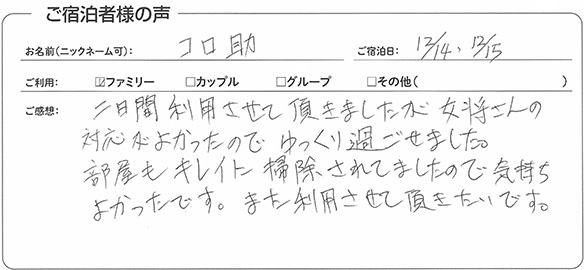 ご宿泊者様の声
お名前(ニックネーム可): コロ助 ご宿泊日: 12/14、12/15
ご利用: ☑ファミリー □カップル □グループ □その他( )
ご感想: 二日間利用させて頂きましたが女将さんの
対応がよかったのでゆっくり過ごせました。
部屋もキレイに掃除されてましたので気持ち
よかったです。また利用させて頂きたいです。